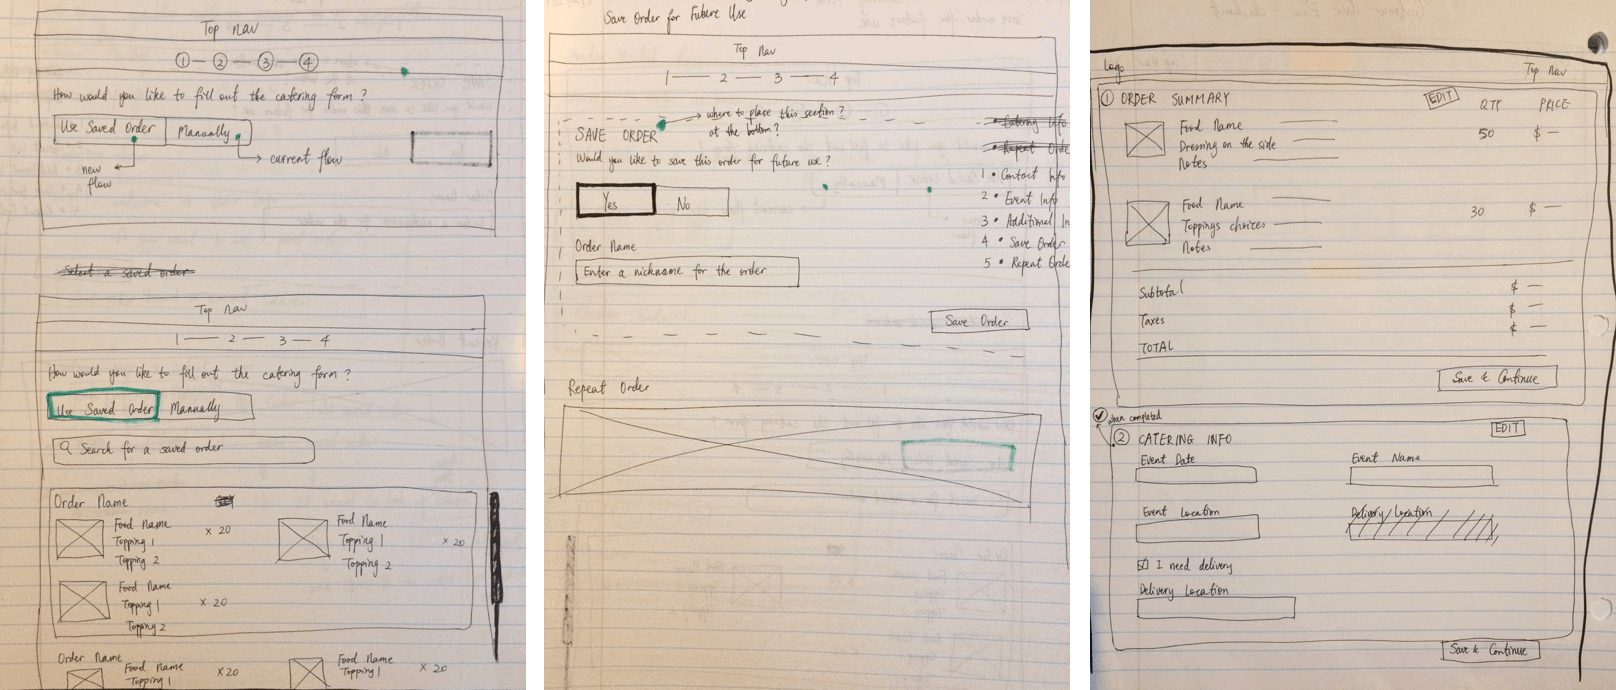 Top nav
1 — 2 — 3 — 4
How would you like to fill out the catering form ?
Use Saved Order Manually
new flow
current flow
Select a saved order
Top nav
1 — 2 — 3 — 4
How would you like to fill out the catering form ?
Use Saved Order Manually
Search for a saved order
Order Name
Food Name
Topping 1
Topping 2
x 20
Food Name
Topping 1
Topping 2
x 20
Food Name
Topping 1
Topping 2
x 20
Order Name
Food Name
Topping 1
x 20
Food Name
Topping 1
x 20
Save Order for Future Use
Top Nav
1 — 2 — 3 — 4
where to place this section ?
at the bottom ?
SAVE ORDER
Would you like to save this order for future use ?
Yes No
Order Name
Enter a nickname for the order
Save Order
• Catering Info
• Repeat Orde
1 • Contact Info
2 • Event Info
3 • Additional In
4 • Save Order
5 • Repeat Orde
Repeat Order
Logo
Top Nav
1 ORDER SUMMARY EDIT QTY PRICE
Food Name
Dressing on the side
Notes
50 $ —
Food Name
Toppings choices
Notes
30 $ —
Subtotal $ —
Taxes $ —
TOTAL $ —
Save & Continue
when completed
2 CATERING INFO EDIT
Event Date Event Name
Event Location Delivery Location
I need delivery
Delivery Location
Save & Continue